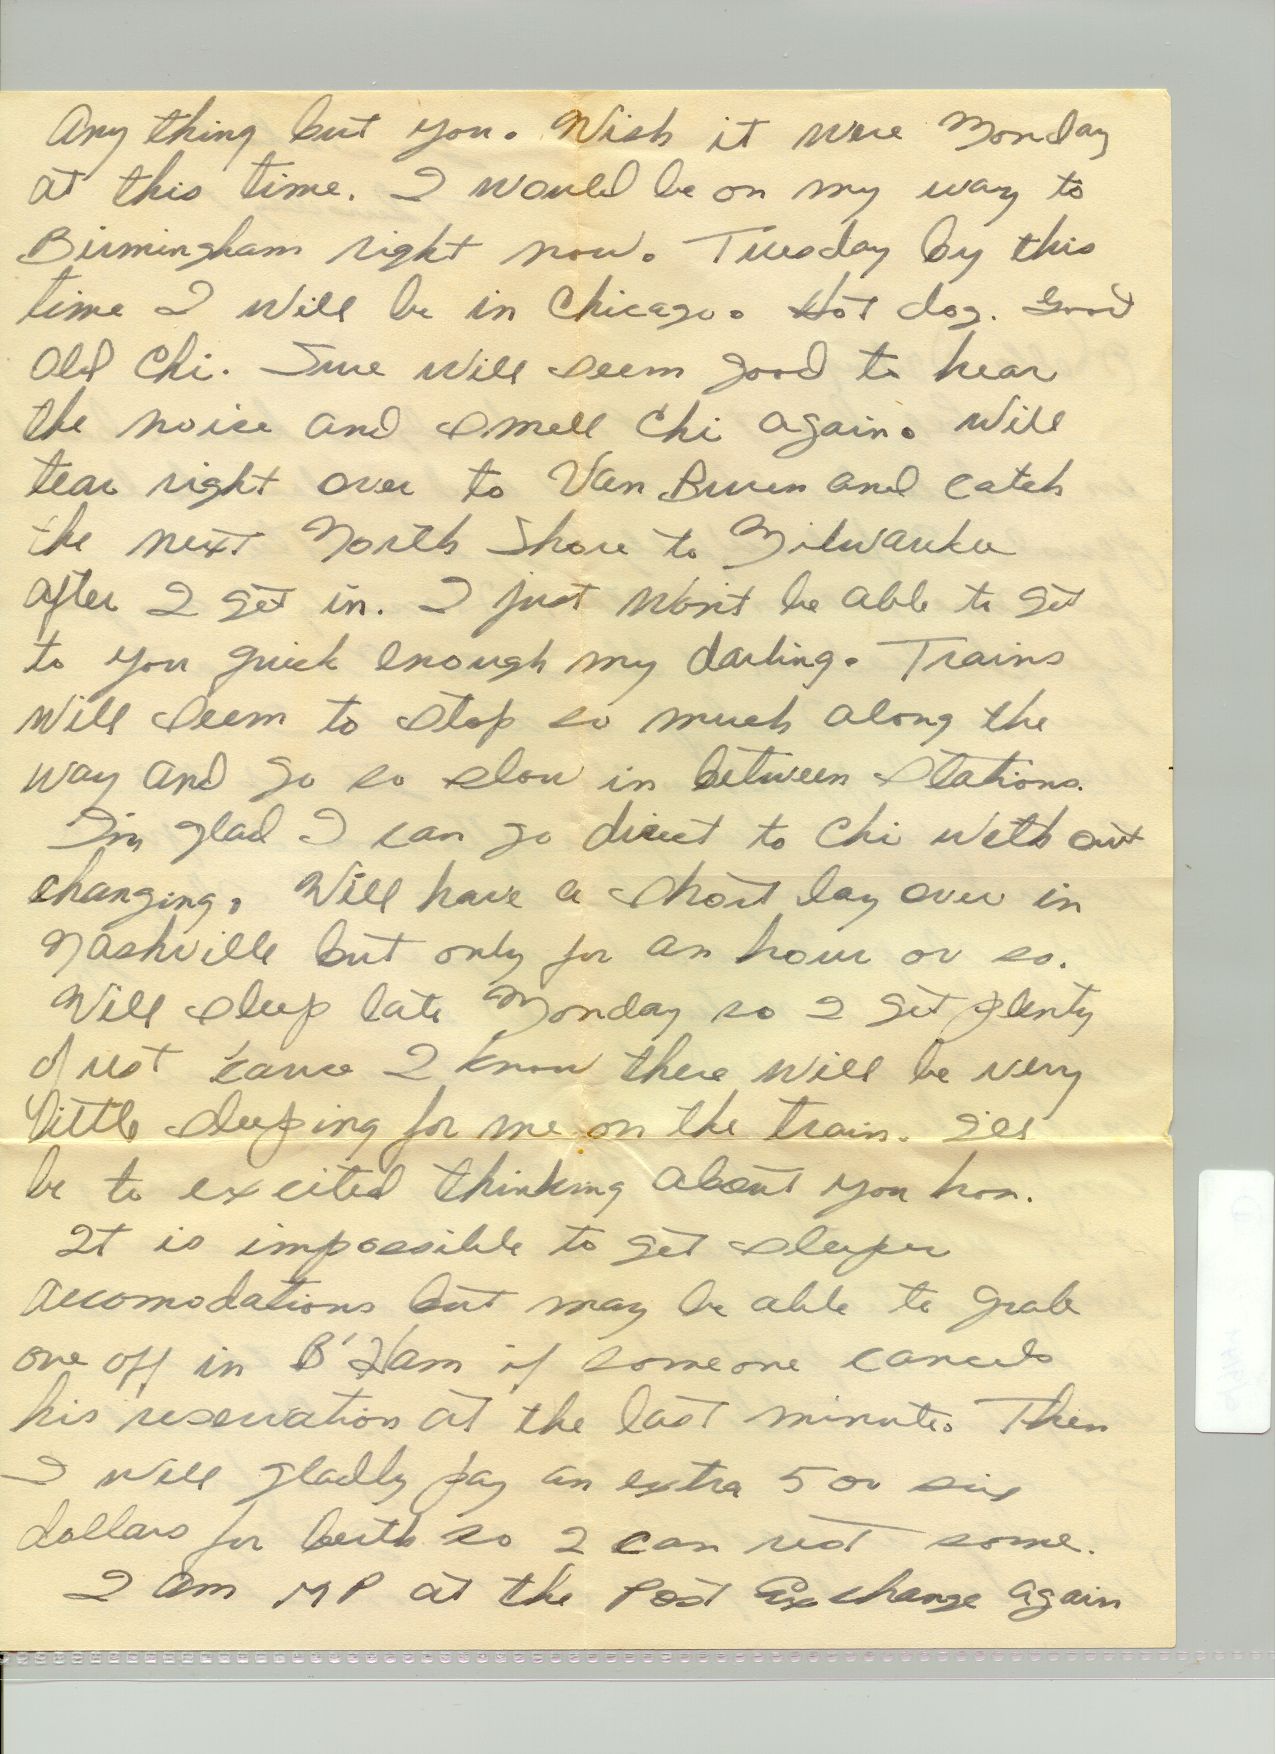 Any thing but you. Wish it were Monday
at this time. I would be on my way to
Birmingham right now. Tuesday by this
time I will be in Chicago. Hot dog. Good
old Chi. Sure will seem good to hear
the noise and smell Chi again. Will
tear right over to Van Buren and catch
the next North Shore to Milwaukee
after I get in. I just won't be able to get
to you quick enough my darling. Trains
will seem to stop so much along the
way and go so slow in between stations.
I'm glad I can go direct to Chi with out
changing. Will have a short lay over in
Nashville but only for an hour or so.
Will sleep late Monday so I get plenty
of rest 'cause I know there will be very
little sleeping for me on the train. I'll
be to excited thinking about you hon.
It is impossible to get sleeper
accomodations but may be able to grab
one off in B'Ham if someone cancels
his reservation at the last minute. Then
I will gladly pay an extra 5 or six
dollars for berth so I can rest some.
I am MP at the Post Exchange again